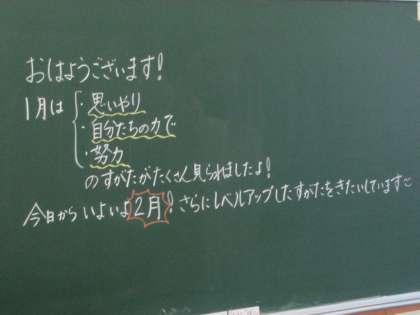 おはようございます!
1月は
・思いやり
・自分たちの力で
・努力
のすがたがたくさん見られましたよ!
今日からいよいよ2月!さらにレベルアップしたすがたをきたいしています~